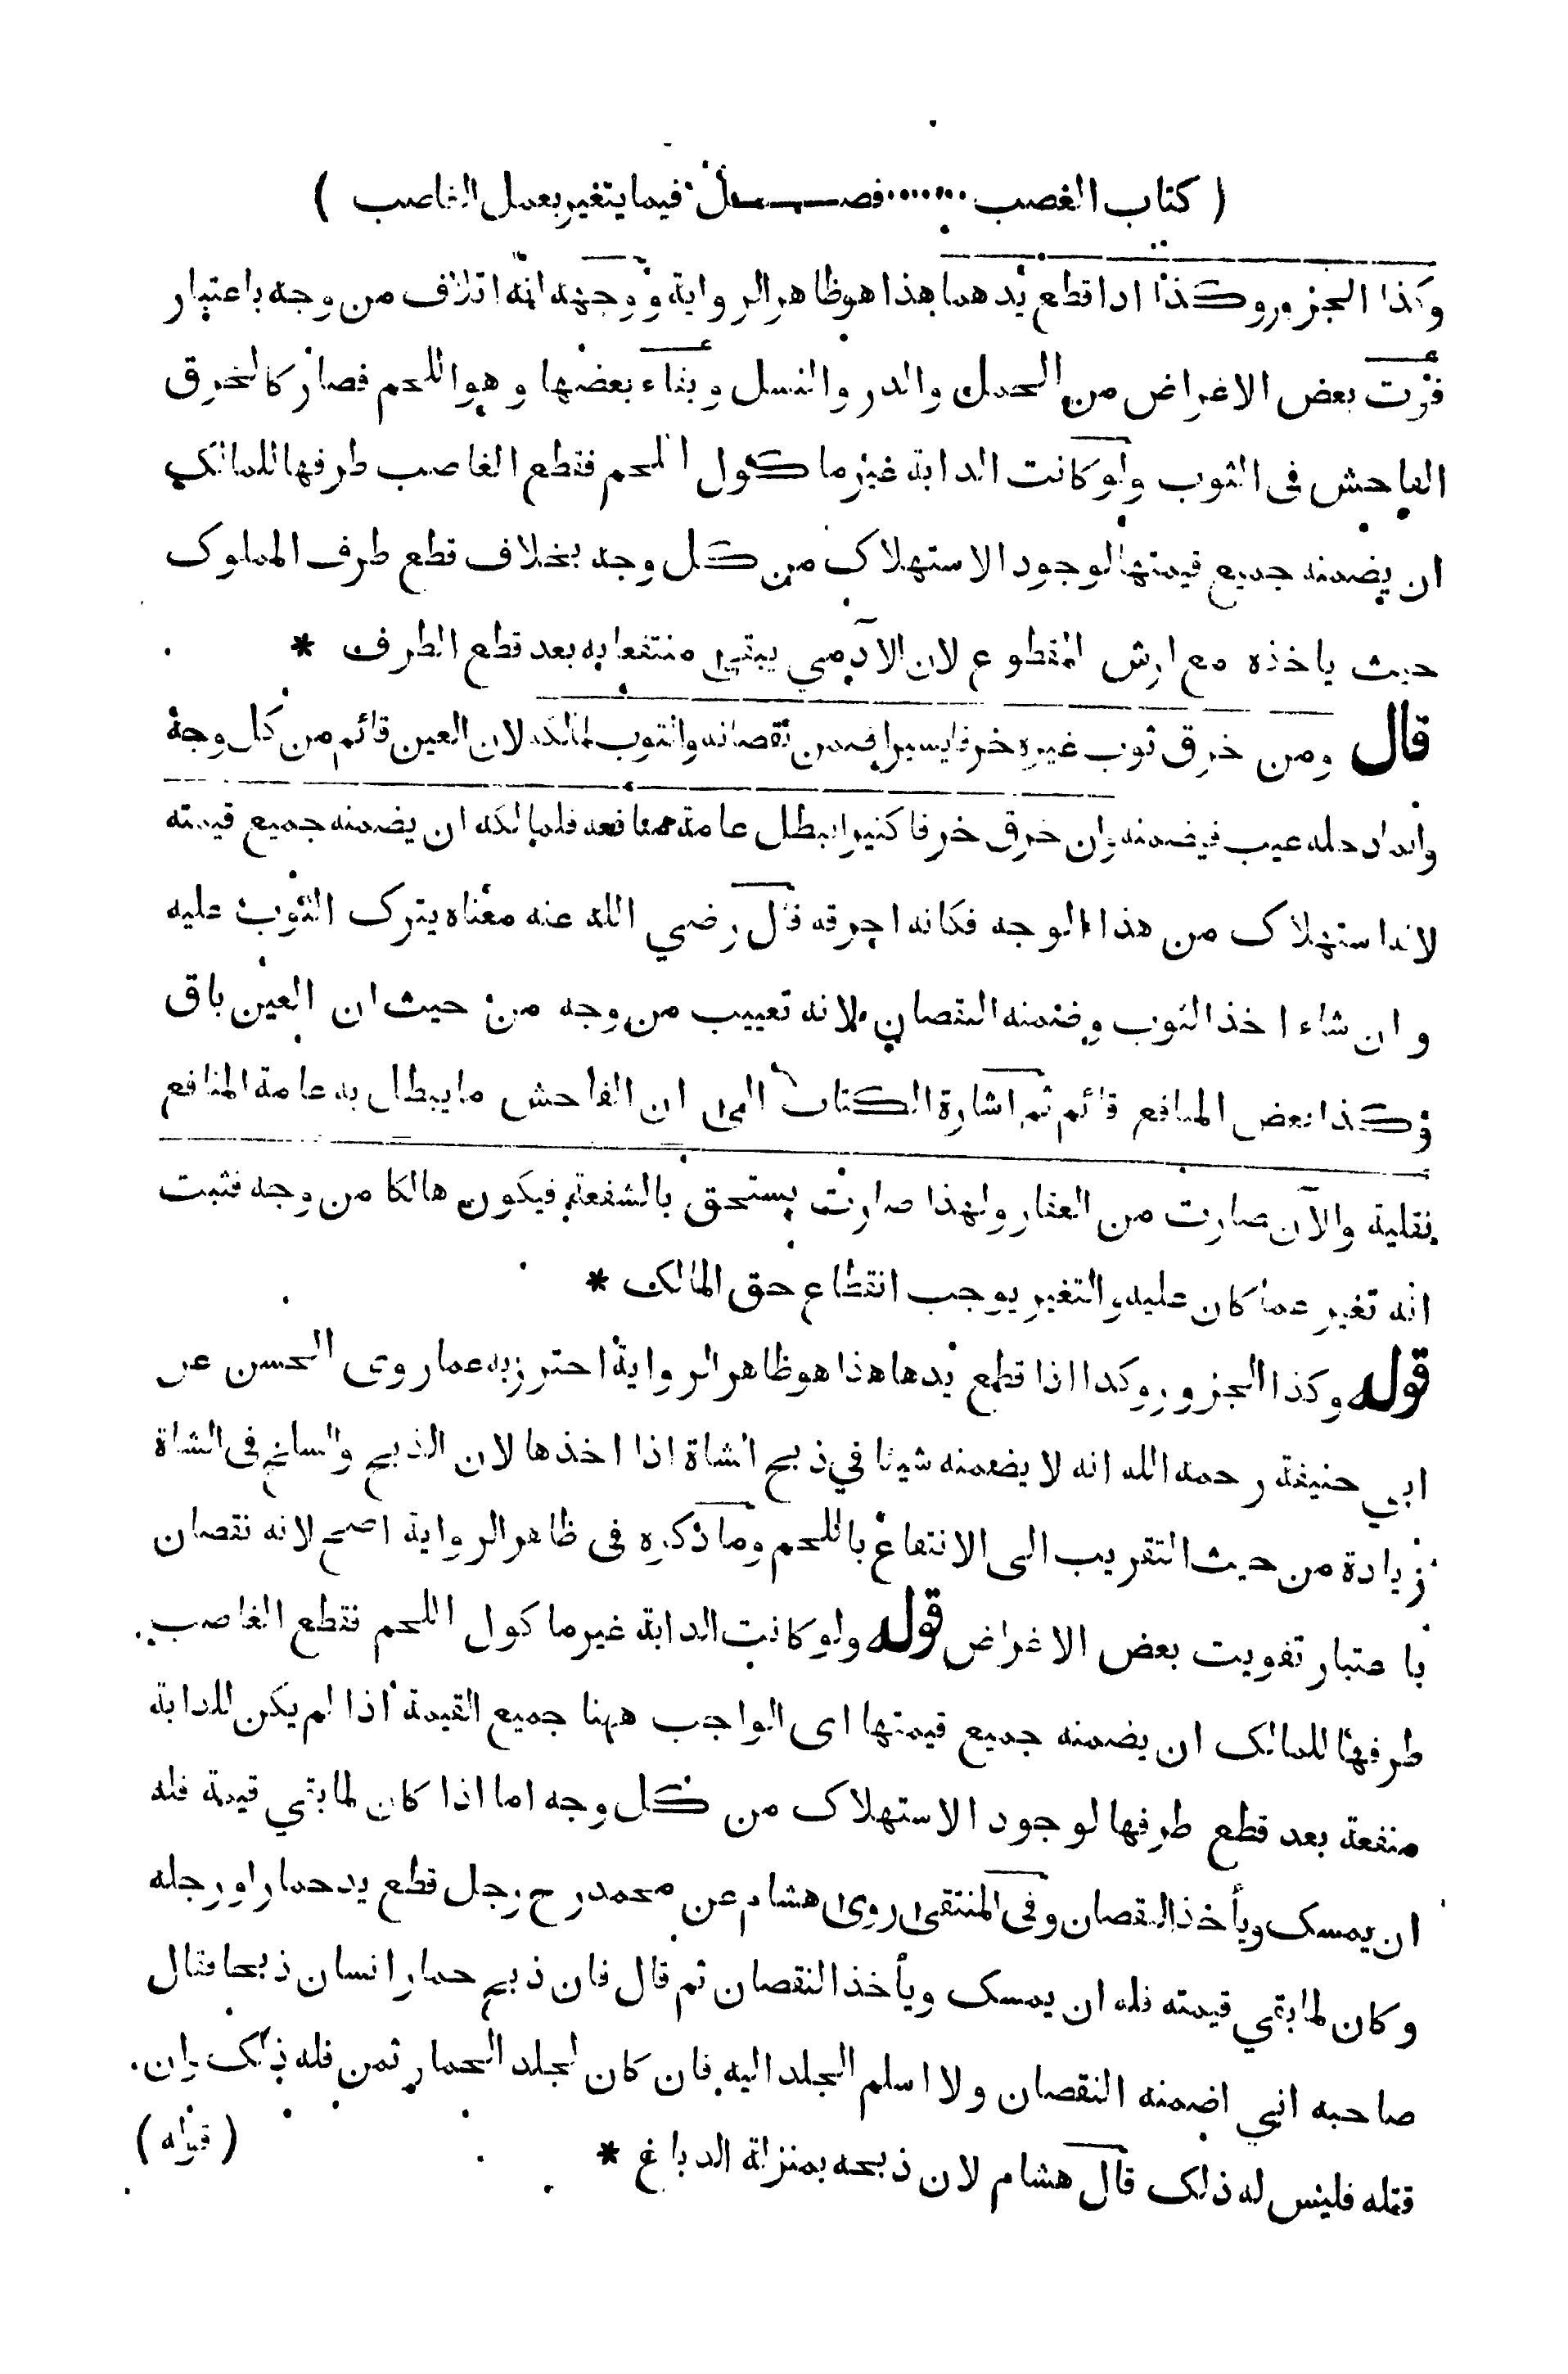 ( كتاب الغصب ....... فصــــل فيما يتغير بعمل الغاصب )
وكذا الجزور وكذا اذا قطع يدهما هذا هو ظاهر الرواية ووجهه انه اتلاف من وجه باعتبار
فوت بعض الاغراض من الحمل والدر والنسل وبقاء بعضها وهو اللحم فصار كالخرق
الفاحش في الثوب ولو كانت الدابة غير ماكول اللحم فقطع الغاصب طرفها للمالك
ان يضمنه جميع قيمتها لوجود الاستهلاك من كل وجه بخلاف قطع طرف المملوك
حيث ياخذه مع ارش المقطوع لان الآدمي يبقى منتفعا به بعد قطع الطرف *
قال ومن خرق ثوب غيره خرقا يسيرا ضمن نقصانه والثوب لمالكه لان العين قائم من كل وجه
وانما دخله عيب فيضمنه وان خرق خرقا كثيرا يبطل عامة منافعه فلمالكه ان يضمنه جميع قيمته
لانه استهلاك من هذا الوجه فكانه احرقه قال رضي الله عنه معناه يترك الثوب عليه
وان شاء اخذ الثوب وضمنه النقصان لانه تعييب من وجه من حيث ان العين باق
وكذا بعض المنافع قائم ثم اشارة الكتاب الى ان الفاحش ما يبطل به عامة المنافع
نقلية والآن صارت من العقار ولهذا صارت يستحق بالشفعة فيكون هالكا من وجه فثبت
انه تغير عما كان عليه والتغير يوجب انقطاع حق المالك *
قوله وكذا الجزور وكذا اذا قطع يدها هذا هو ظاهر الرواية احترز به عما روى الحسن عن
ابي حنيفة رحمه الله انه لا يضمنه شيئا في ذبح الشاة اذا اخذها لان الذبح والسلخ في الشاة
زيادة من حيث التقريب الى الانتفاع باللحم وما ذكره في ظاهر الرواية اصح لانه نقصان
با عتبار تفويت بعض الاغراض قوله ولو كانت الدابة غير ماكول اللحم فقطع الغاصب
طرفها للمالك ان يضمنه جميع قيمتها اى الواجب ههنا جميع القيمة اذا لم يكن للدابة
منفعة بعد قطع طرفها لوجود الاستهلاك من كل وجه اما اذا كان لما بقي قيمة فله
ان يمسك ويأخذ النقصان وفى المنتقى روى هشام عن محمد رح رجل قطع يد حمار او رجله
وكان لما بقي قيمته فله ان يمسك ويأخذ النقصان ثم قال فان ذبح حمار انسان ذبحا فقال
صاحبه اني اضمنه النقصان ولا اسلم الجلد اليه فان كان لجلد الحمار ثمن فله ذلك وان
قتله فليس له ذلك قال هشام لان ذبحه بمنزلة الدباغ *
( قوله )